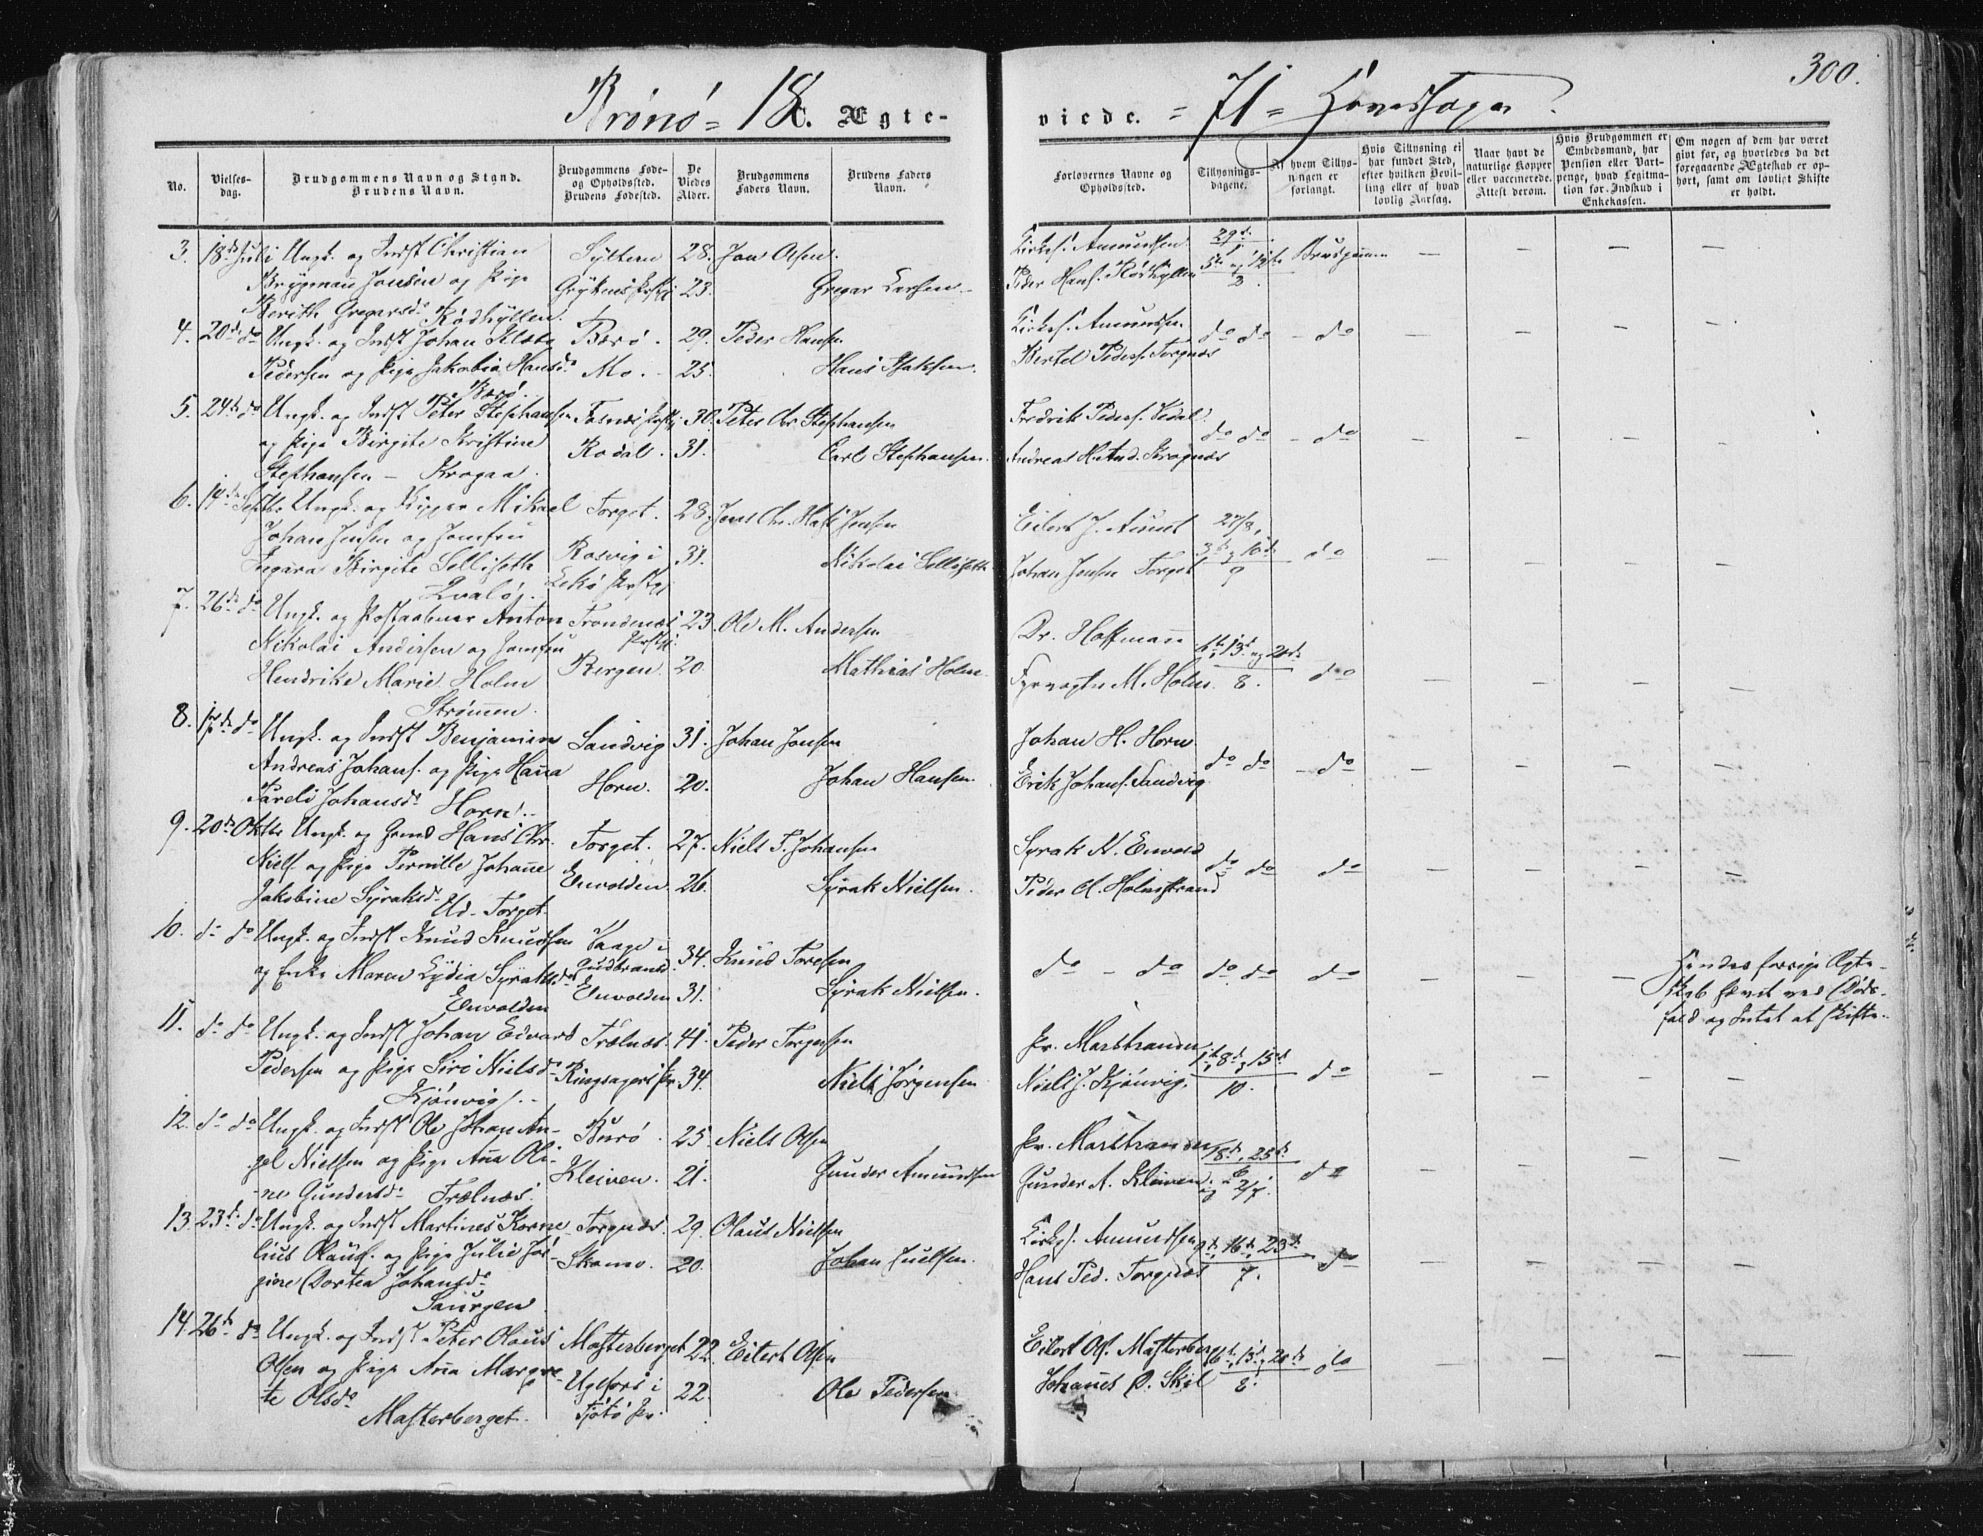 300.
Brønø = 18 Ægte-
viede. = 71 = Hovedsogn.
No.
Vielses-
dag.
Brudgommens Navn og Stand.
Brudens Navn.
Brudgommens Føde-
og Opholdssted.
Brudens Fødested.
De
Viedes
Alder.
Brudgommens
Faders Navn.
Brudens Faders
Navn.
Forlovernes Navne og
Opholdssted.
Tillysnings-
dagene.
Af hvem Tillys-
ningen er
forlangt.
Hvis Tillysning ei
har fundet Sted,
efter hvilken Bevil-
ling eller af hvad
lovlig Aarsag.
Naar havt de
naturlige Kopper
eller vaccinerede.
Attest derom.
Hvis Brudgommen er
Embedsmand, har
Pension eller Vart-
penge, hvad Legitima-
tion for Indskud i
Enkekassen.
Om nogen af dem har været
givt før, og hvorledes da det
foregaaende Ægteskab er op-
hørt, samt om lovligt Skifte
er holdt.
3. 18de Juli Ungk. og Indst Christian
Brygman Jonsen og Pige
Berith Gregarsd.
Rødhyllen.
Sylteren 28. Jon Olsen.
23. Gregar Larsen
Kirkes. Amundsen
Peder Hans. Rødhyllen
29de
5te og 12te Brudgommen —
4. 20de do Ungk. og Indst Johan Klæbo
Pedersen og Pige Jakobia Hansd.
Borø.
Borø. 29. Peder Hansen
Mo. 25. Hans Isaksen.
Kirkes. Amundsen
Bertel Peders. Torgnæs
do do - do
5. 24de do Ungk. og Indst Peter Stephansen
og Pige Birgite Kristine
Stephansen — Krogaa.
30. Peter Chr Stephansen
Rodal. 31. Carl Stephansen.
Fredrik Peders. Vedal
Andreas N. And. Krognæs
do do - do
6. 14de Septbr Ungk. og Skipper Mikael
Johan Jensen og Jomfru
Birgite Selliseth
Kvaløj.
Torget. 28. Jens Chr. Jensen
Rosvig i
Lekø Prstgj 31. Nikolai Sellisett
Eilert J. Aunet
Johan Jensen Torget
27/8,
3de og 10de
9
do
7. 26de do Ungk. og Postaabner Anton
Nikolai Andersen og Jomfru
Hendrike Marie Holm
Strømen.
Trondenæs
Prstgj. 23. Ole M. Andersen
Bergen. 20. Mathias Holm
Dr. Hoffmann
Fyrvogter M. Holm.
6te, 13de og 20de
8.
do
8. 17de do Ungk. og Indst Benjamin
Andreas Johans. og Pige Hana
Pareli Johansd.
Horn.
Sandvig 31. Johan Jonsen
Horn. 20. Johan Hansen
Johan H. Horn
Erik Johans. Sandvig
do do - do
9. 20de Oktbr Ungk. og Grmd Hans Chr.
Niels. og Pige Pernille Johane
Jakobine Syraksd.
Ud-Torget
Torget. 27. Niels T. Johansen
Envolden 26. Syrak Nielsen.
Syrak N. Envold
Peder A. Holmstrand
do do do
10. do do Ungk. og Indst Knud Knudsen
og Enke Maren Lydia Syraksd.
Envolden
Vaage i
Gudbrandd. 34. Knud Toresen
Envolden 31. Syrak Nielsen.
do - do do do do
Hendes forrige Ægte-
skab hævet ved Døds-
fald og Intet at skifte.
11. do do Ungk. og Indst Johan Edvard
Pedersen og Pige Siri Nielsd.
Kjønvig.
Trælnæs. 41. Peder Torgersen
Ringsager Pr. 34. Niels Jørgensen
Pr. Marstrander
Niels J. Kjønvig.
1ste, 8de og 15de
10.
do
12. do do Ungk. og Indst Ole Johan An-
gel Nielsen og Pige Ana Oli-
ne Gundersd. Trælnæs.
Burø. 25. Niels Olsen
Kleiven. 21. Gunder Amundsen
Pr. Marstrander
Gunder A. Kleiven
18de, 25de
6
og 2/7.
do
13. 23de do Ungk. og Indst Martines Korne-
lius Olaus. og Pige Julie Jør-
gine Dortea Johansd.
Saurgen
Torgnæs. 29. Olaus Nielsen
Skomo. 20. Johan Juelsen.
Kirkes. Amundsen
Hans Ped. Torgnæs
9de, 16de, 23de
7.
do
14. 26de do Ungk. og Indst Peter Olaus
Olsen og Pige Ana Margre-
te Olsd.
Masterberget.
Masterberget 22. Eilert Olsen
i
Tjøtø Pr. 22. Ole Pedersen
Eilert Ols. Masterberg
Johanes P. Skil
6te, 13de og 20de
8.
do